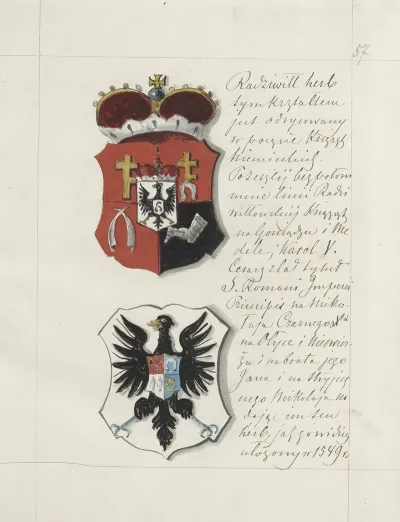 57
Radziwiłł herb
tym kształtem
jest odrysowany
w poczcie Książąt
Niemieckich.
Pozszłéj bezpotom
mnie linii Radzi
wiłłowskiéj Książąt
na Goniądzu i Me
dele, Karol V.
Cesarz dał tytuł
S. Romani Imperii
Principis na Miko
łaja Czarnego
na Ołyce i Nieświe
żu i na brata jego
Jana i na stryjecz
nego Mikołaja na
dając im ten
herb, jak powidzisz
ułożony w 1549 r.